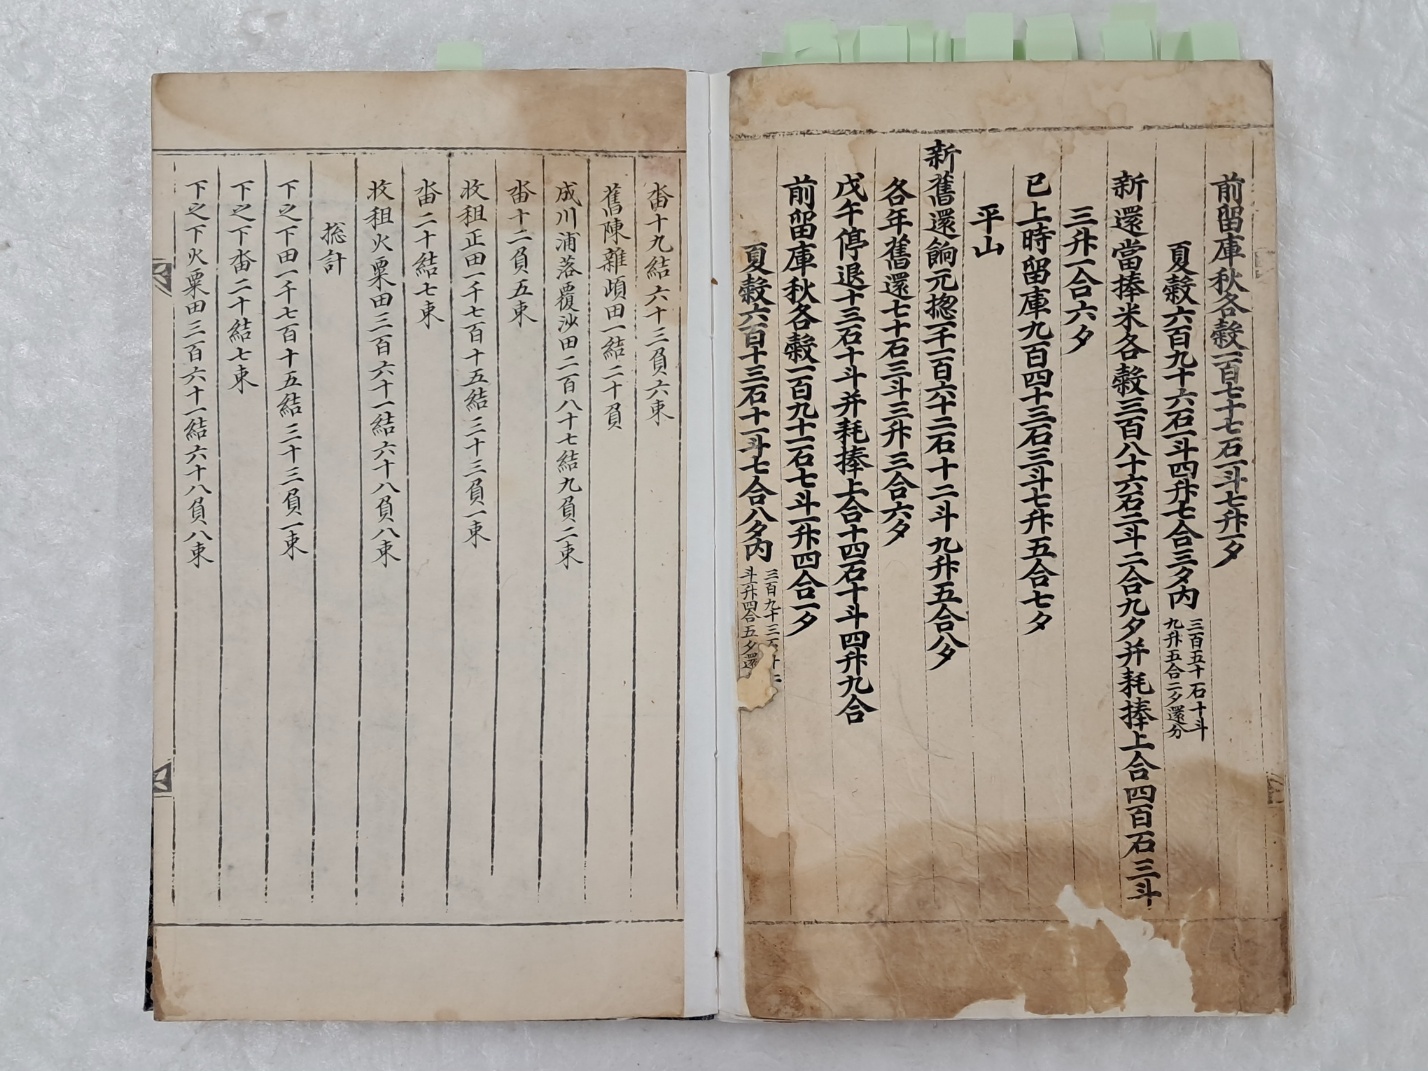 前留庫秋各穀一百七十七石一斗七升一夕
夏穀六百九十六石一斗四升七合三夕內
三百五十石十斗
九升五合二夕還分
新還當捧米各穀三百八十六石二斗二合九夕幷耗捧上合四百石三斗
三升一合六夕
已上時留庫九百四十三石三斗七升五合七夕
平山
新舊還餉元摠一千一百六十二石十二斗九升五合八夕
各年舊還七十石三斗三升三合六夕
戊午停退十三石十斗幷耗捧上合十四石十斗四升九合
前留庫秋各穀一百九十二石七斗一升四合一夕
夏穀六百十三石十一斗七合八夕內
三百九十三
斗一升四合五夕還
畓十九結六十三負六束
舊陳雜頉田一結二十負
成川浦落覆沙田二百八十七結九負二束
畓十二負五束
收租正田一千七百十五結三十三負一束
畓二十結七束
收租火粟田三百六十一結六十八負八束
摠計
下之下田一千七百十五結三十三負一束
下之下畓二十結七束
下之下火粟田三百六十一結六十八負八束